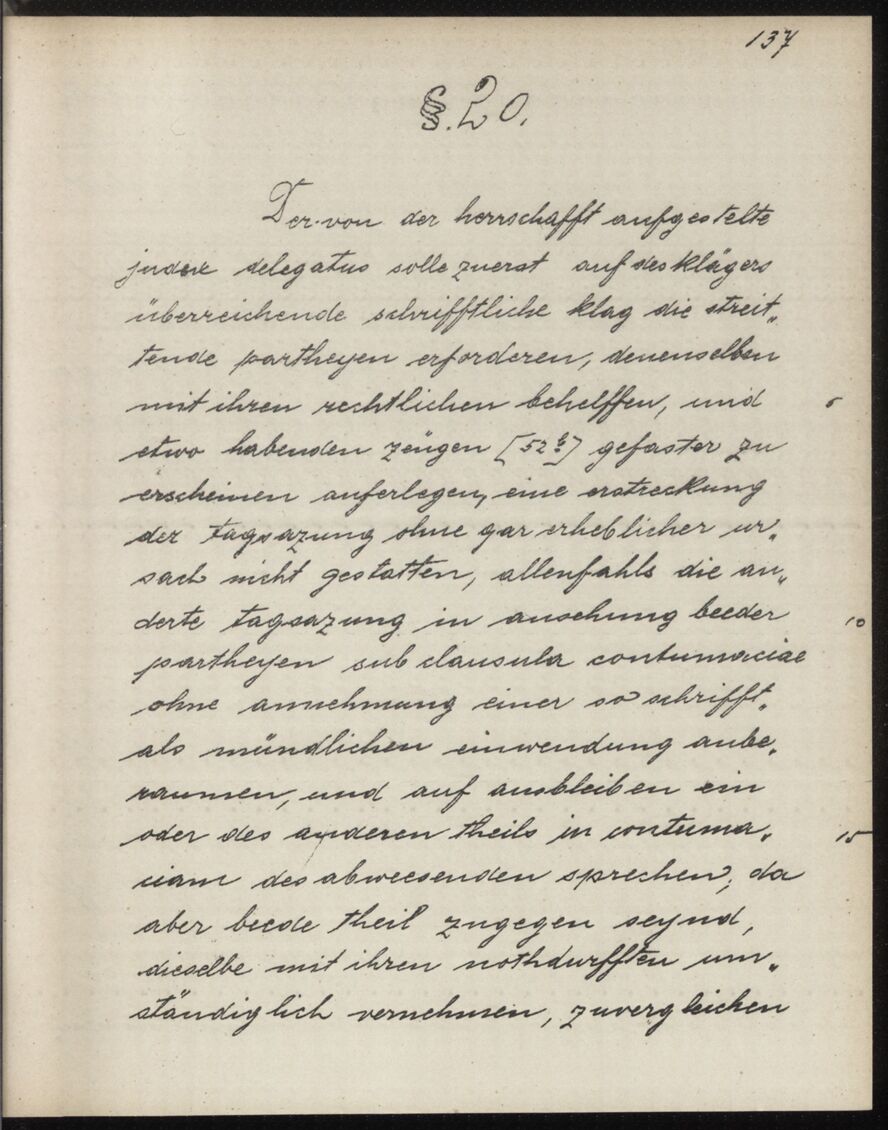 137
§. 20.
Der von der herrschafft aufgestelte
judex delegatus solle zuerst auf des klägers
überreichende schrifftliche klag die streit„
tende partheyen erforderen, denenselben
mit ihren rechtlichen behelffen, und 5
etwo habenden zeügen [52b] gefaster zu
erscheinen auferlegen, eine erstreckung
der tagsazung ohne gar erheblicher ur„
sach nicht gestatten, allenfahls die an„
derte tagsazung in ansehung beeder 10
partheyen sub clausula contumaciae
ohne annehmung einer so schrifft„
als mündlichen einwendung anbe„
raumen, und auf ausbleiben ein
oder des anderen theils in contuma„ 15
ciam des abweesenden sprechen; da
aber beede theil zugegen seynd,
dieselbe mit ihren nothdurfften um„
ständiglich vernehmen, zuvergleichen